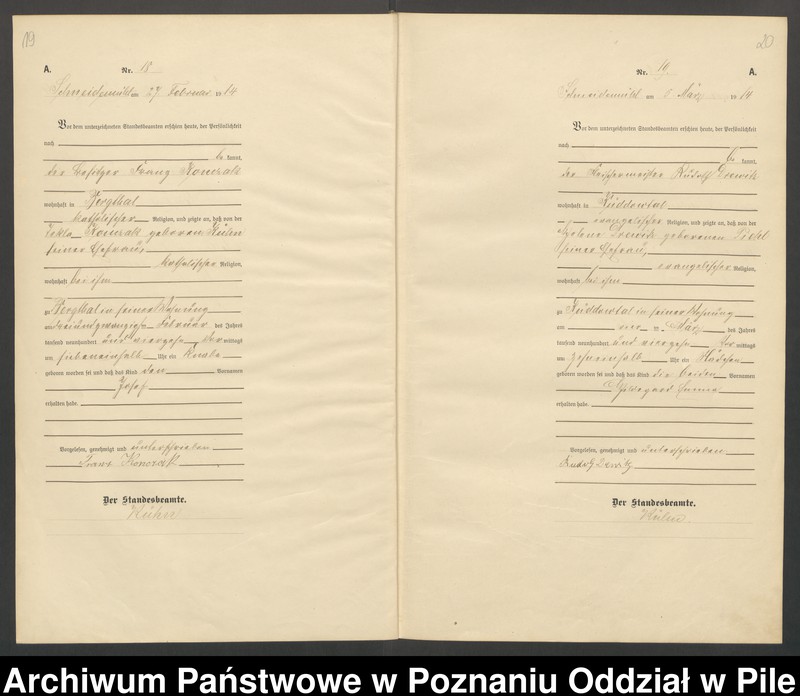 19
A.
Nr. 18
Schneidemühl am 27 Februar 1914
Vor dem unterzeichneten Standesbeamten erschien heute, der Persönlichkeit
nach
be kannt,
der Besitzer Franz
wohnhaft in
katholischer Religion, und zeigte an, daß von der
geborenen
seiner Ehefrau,
katholischer Religion,
wohnhaft bei ihm
zu in seiner Wohnung
am dreiundzwanzigsten Februar des Jahres
tausend neunhundert und vierzehn mittags
um siebeneinhalb Uhr ein Knabe
geboren worden sei und daß das Kind den Vornamen
Josef
erhalten habe.
Vorgelesen, genehmigt und unterschrieben
Franz
Der Standesbeamte.
20
Nr. 19
A.
Schneidemühl am März 1914
Vor dem unterzeichneten Standesbeamten erschien heute, der Persönlichkeit
nach
be kannt,
der Rudolf
wohnhaft in Küddowtal
evangelischer Religion, und zeigte an, daß von der
geborenen
seiner Ehefrau,
evangelischer Religion,
wohnhaft bei ihm
zu Küddowtal in seiner Wohnung
am ten März des Jahres
tausend neunhundert und vierzehn mittags
um zehneinhalb Uhr ein Mädchen
geboren worden sei und daß das Kind die beiden Vornamen
Hildegard
erhalten habe.
Vorgelesen, genehmigt und unterschrieben
Rudolf
Der Standesbeamte.
Archiwum Państwowe w Poznaniu Oddział w Pile